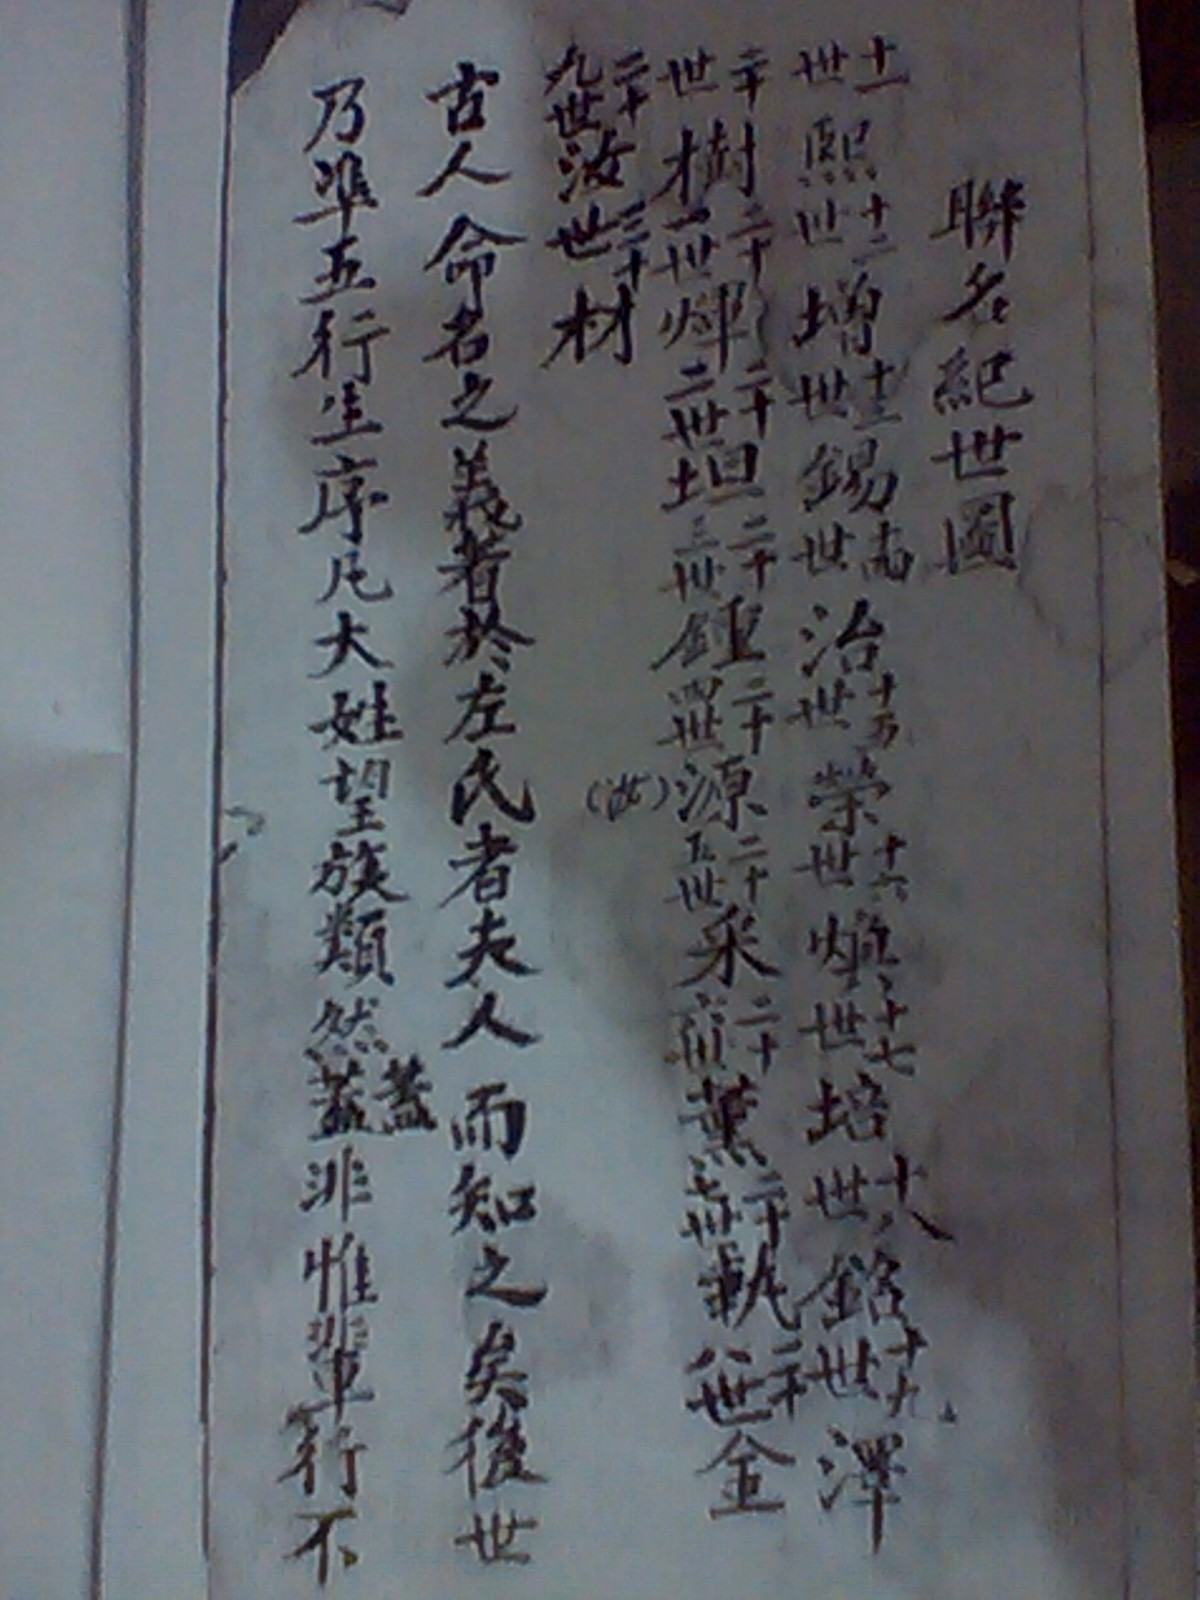 聯名紀世圖
十一世熙十二世增十三世錫十四世治十五世榮十六世煩十七世培十八世銘十九世澤
二十世樹二十一世煇二十二世坦二十三世鍾二十四世源二十五世采二十六世薰二十七世執二十八世金
二十九世汝三十世材
古人命名之義著於左氏者夫人而知之矣後世
乃準五行生序凡大姓望族類然蓋蓋非惟輩行不